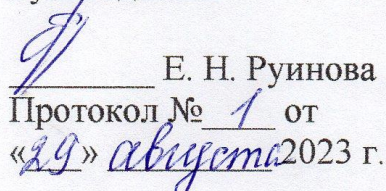 Е. Н. Руинова
Протокол № 1 от
«29» августа 2023 г.